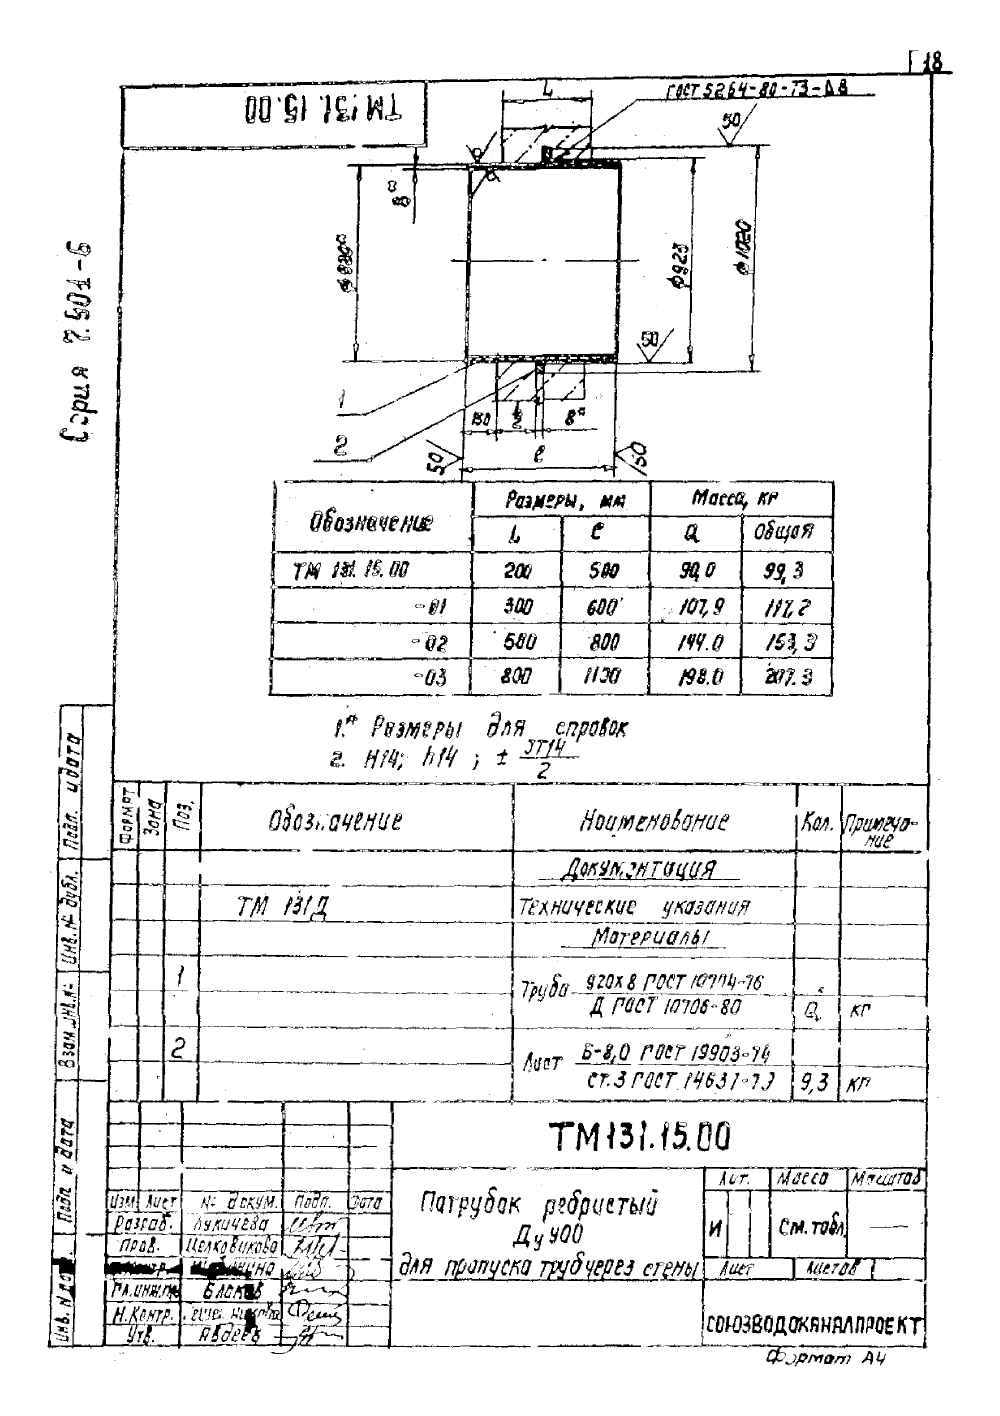 18
ТМ 131.15.00
Серия 7.901-6
L
ГОСТ 5264-80-Т3-Δ8
50
8*
ø920
ø1020
50
1
2
150
L
2
8*
50
ℓ
50
Обозначение
Размеры, мм
Масса, кг
L
ℓ
Q
Общая
ТМ 131.15.00 200 500 90,0 99,3
-01 300 600 107,9 117,2
-02 500 800 144.0 153,3
-03 800 1100 198.0 207.3
1.* Размеры для справок
2. H14; h14; ± IT14
2
Формат
Зона
Поз.
Обозначение
Наименование
Кол.
Примеча-
ние
Документация
ТМ 131Д
Технические указания
Материалы
1
Труба 920х8 ГОСТ 10704-76
Д ГОСТ 10706-80
Q
кг
2
Лист Б-8,0 ГОСТ 19903-74
ст.3 ГОСТ 14637-79
9,3
кг
Подп. и дата
Инв. № дубл.
Взам. инв. №
Подп. и дата
Инв. № подл.
ТМ131.15.00
Изм Лист № докум. Подп. Дата
Разраб. Лукичева
Пров. Целковикова
Гл.инж.пр
Н.Контр.
Утв. Авдеев
Патрубок ребристый
Ду 900
для пропуска труб через стены
Лит.
Масса
Масштаб
И
См. табл.
Лист
Листов 1
СОЮЗВОДОКАНАЛПРОЕКТ
Формат А4